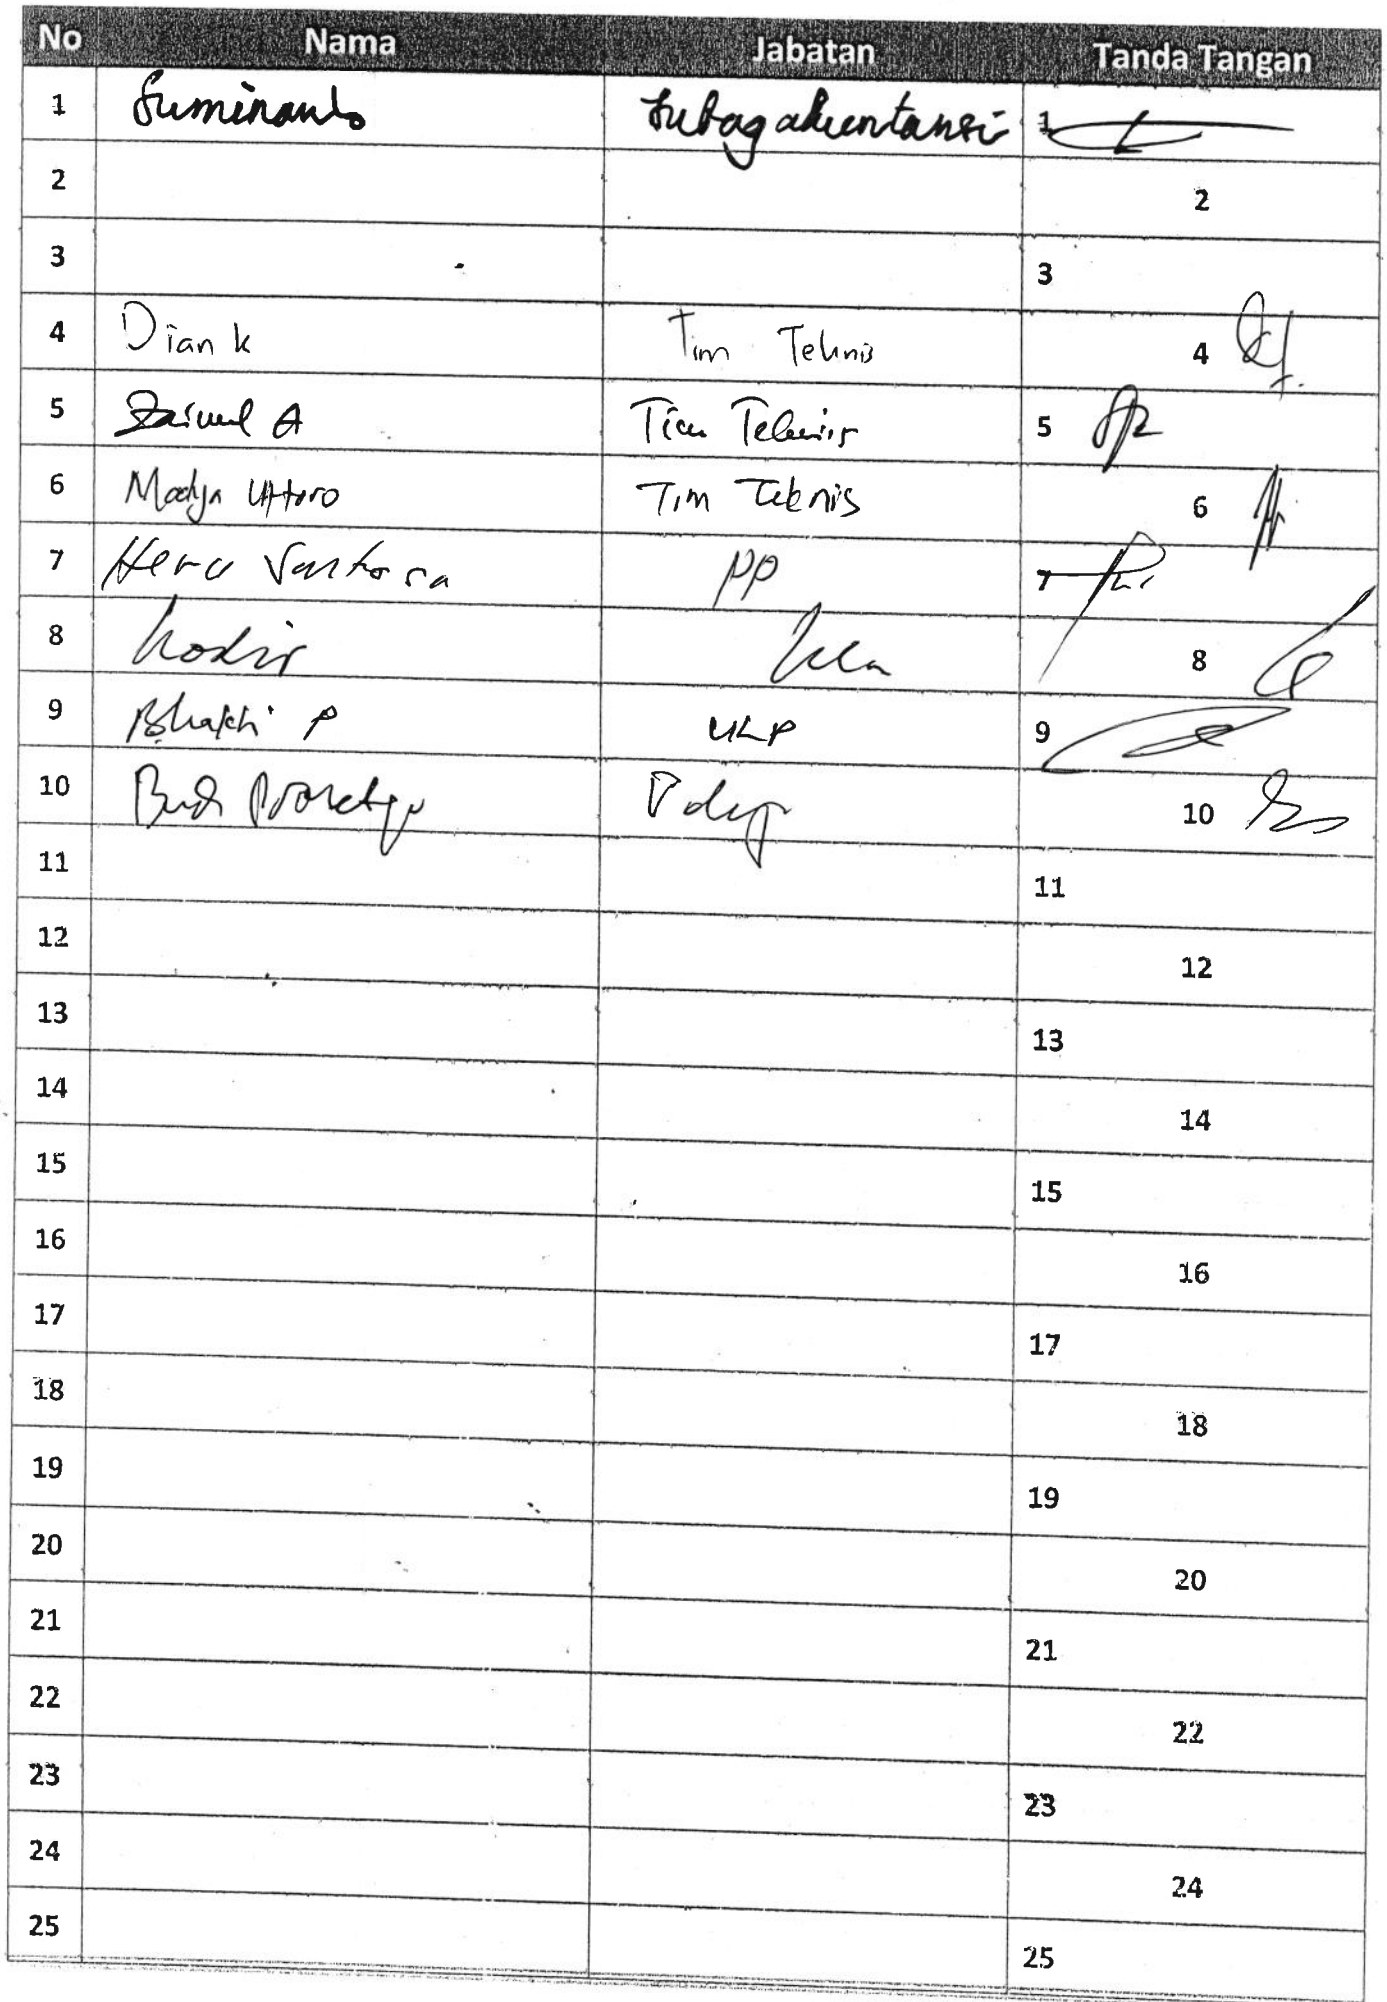 No Nama Jabatan Tanda Tangan
1 Suminanto Subag akuntansi 1
2 2
3 3
4 Dian K Tim Teknis 4
5 Zainul A Tim Teknis 5
6 Madya Uttoro Tim Teknis 6
7 Heru Santosa PP 7
8 Kodir 8
9 Bhakti P ULP 9
10 Budi 10
11 11
12 12
13 13
14 14
15 15
16 16
17 17
18 18
19 19
20 20
21 21
22 22
23 23
24 24
25 25